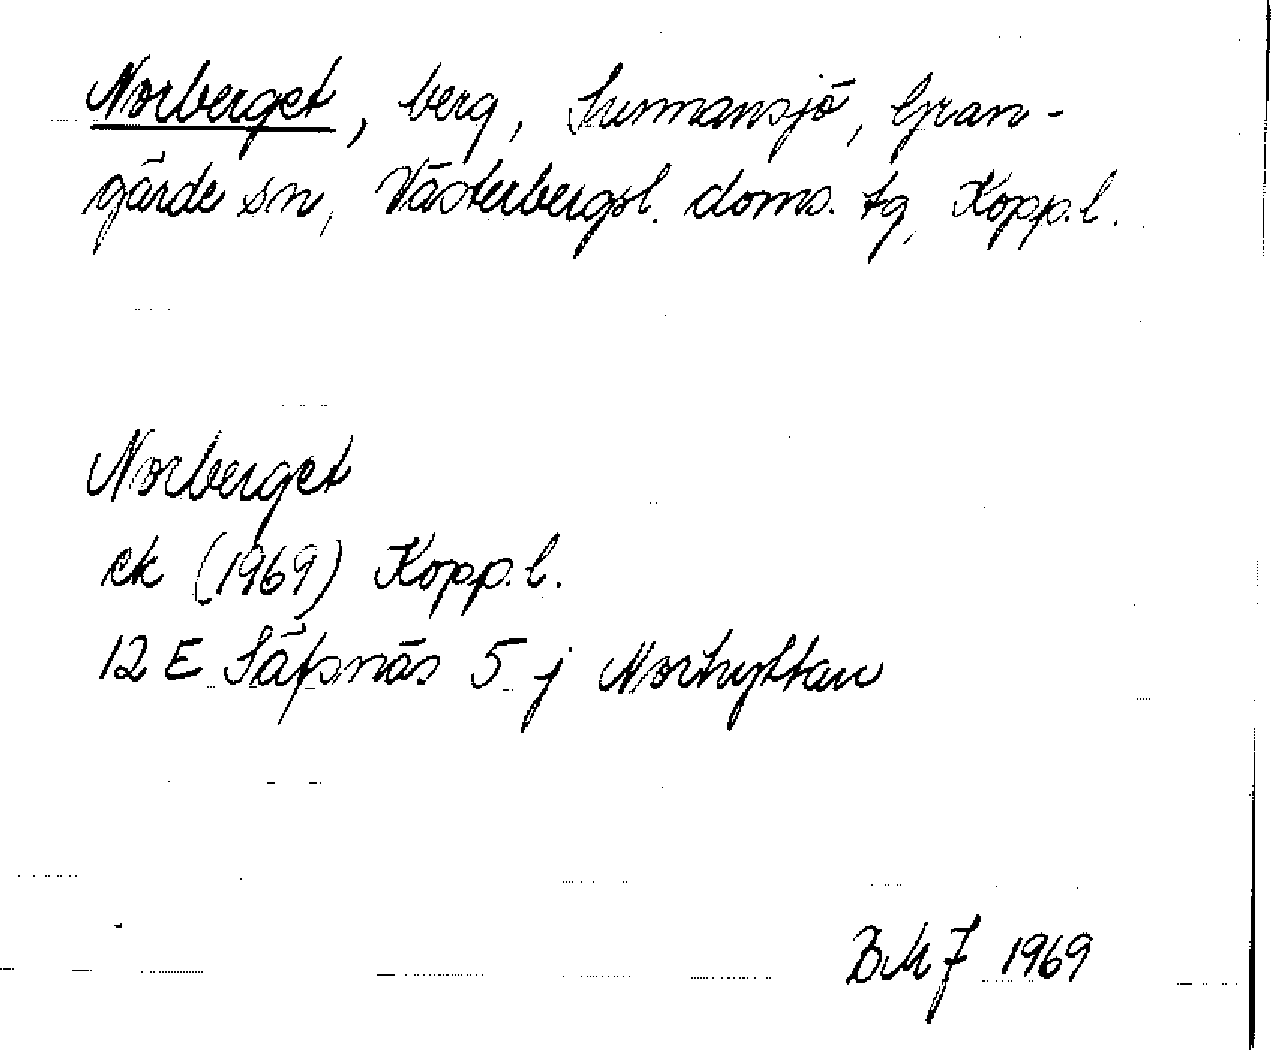 Norberget, berg, Sunnansjö, Gran-
gärde sn, Västerbergsl. doms. tg, Kopp. l.
Norberget
ek (1969) Kopp. l.
12 E Säfsnäs 5 j Norhyttan
BMJ 1969